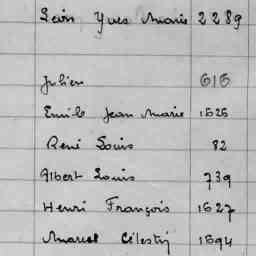 Léon Yves Marie 2289
Julien 616
Emile Jean Marie 1626
René Louis 82
Albert Louis 739
Henri François 1627
Marcel Célestin 1694